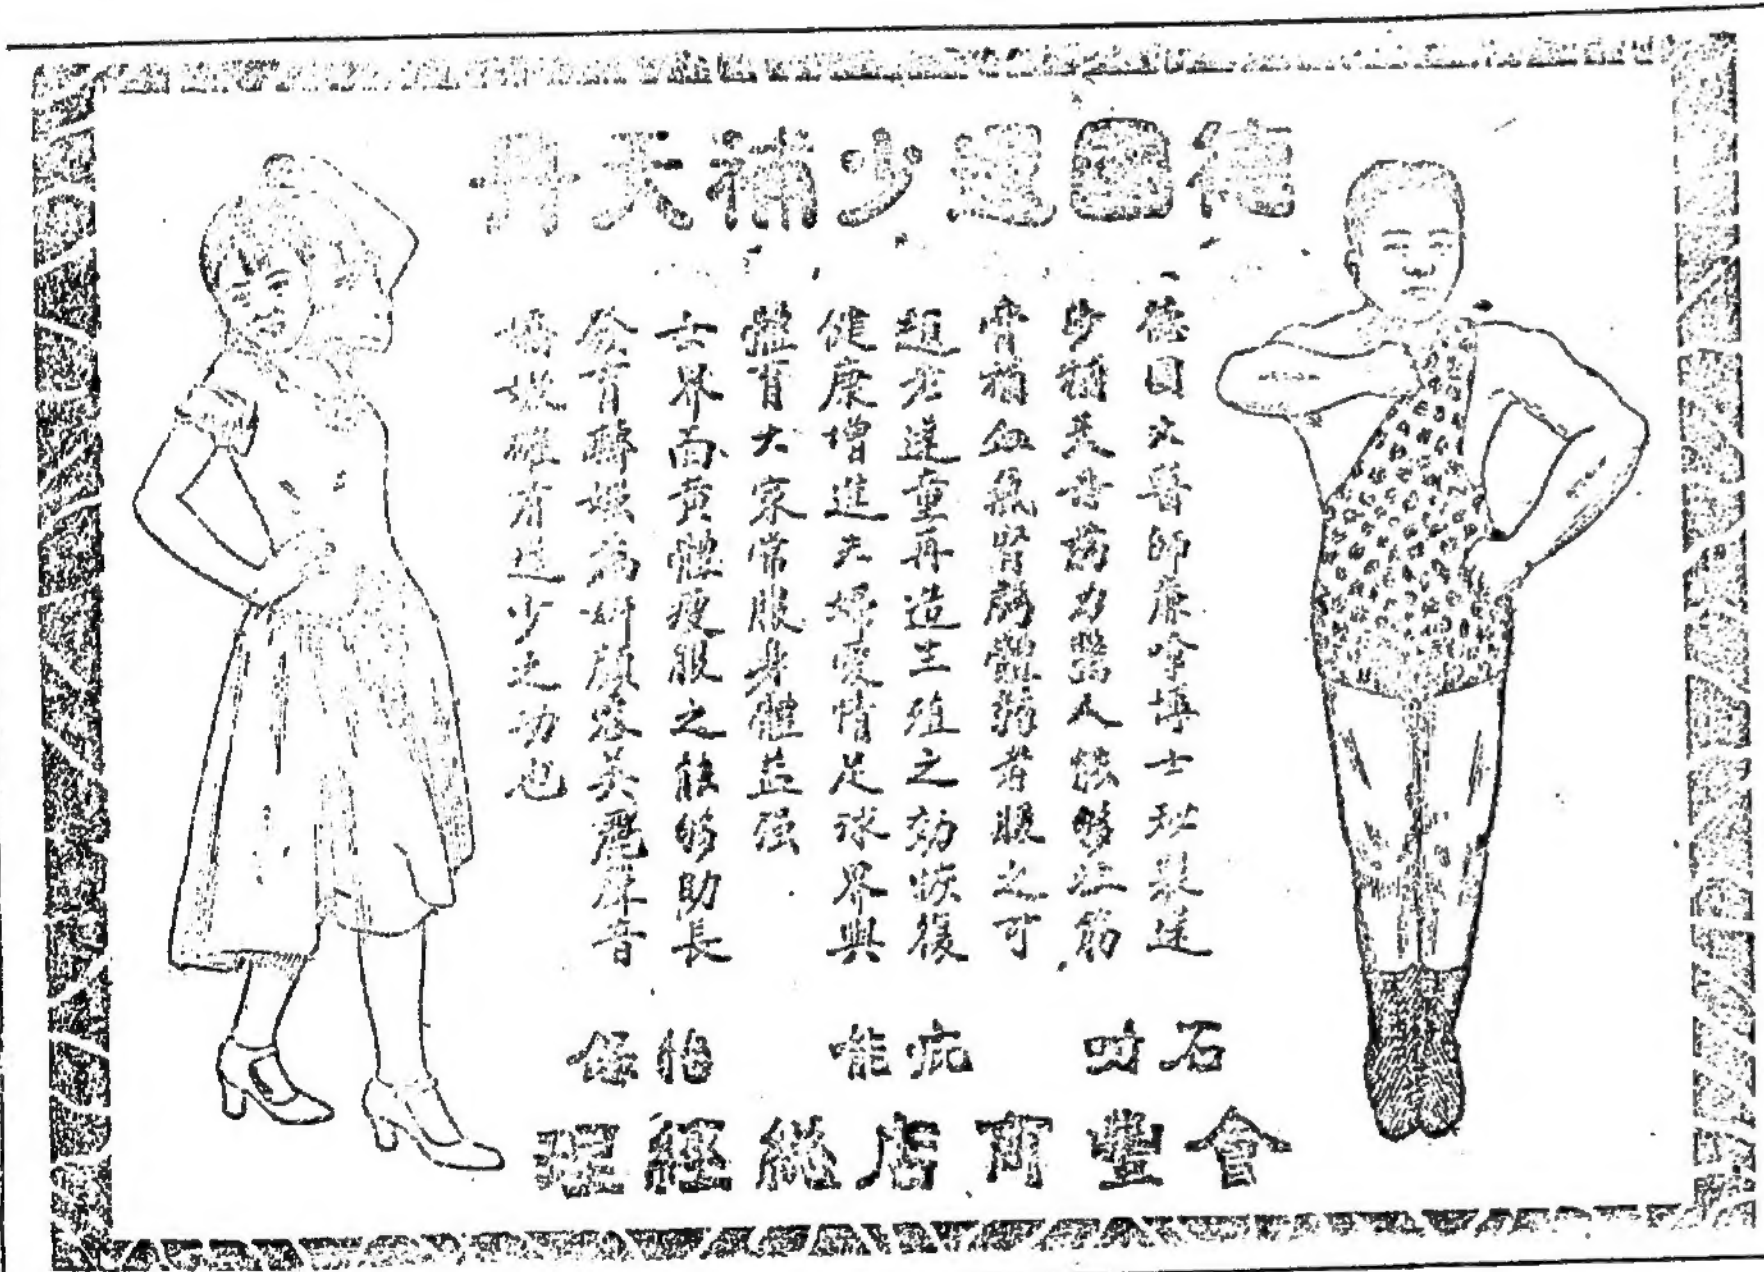 德国還少補天丹
德国大醫師康寧博士秘製還
少補天丹藥力當人能够壮筋
骨補血氣腎虧體弱者服之可
返老還童再造生殖之効恢復
健康增進夫婦爱情足球界與
體育大家常服身體益强
女界面黄體瘦服之能够助長
發育轉媸為妍顔容美麗声音
嬌
確有還少之功也
石叻
疵能
能
會豐商店總經理